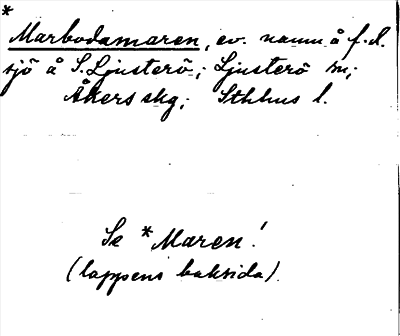 *
Marbodamaren, ev. namn å f.d.
sjö å S. Ljusterö; Ljusterö sn;
Åkers skg; Sthlms l.
Se *Maren!
(lappens baksida).